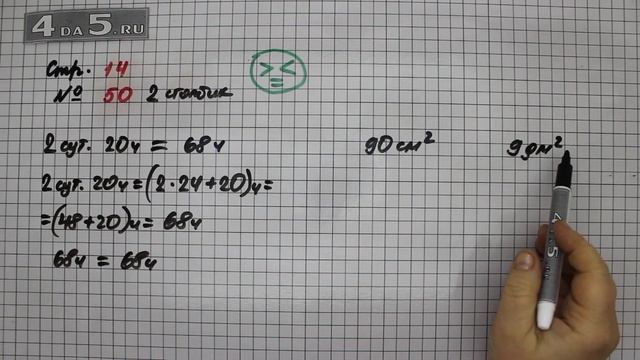 4 DA 5.RU
Стр. 14
№ 50 2 столбик
2 сут. 20ч = 68ч
2 сут. 20ч = (2·24+20)ч =
= (48+20)ч = 68ч
68ч = 68ч
90 см² 9 дм²
4 DA 5